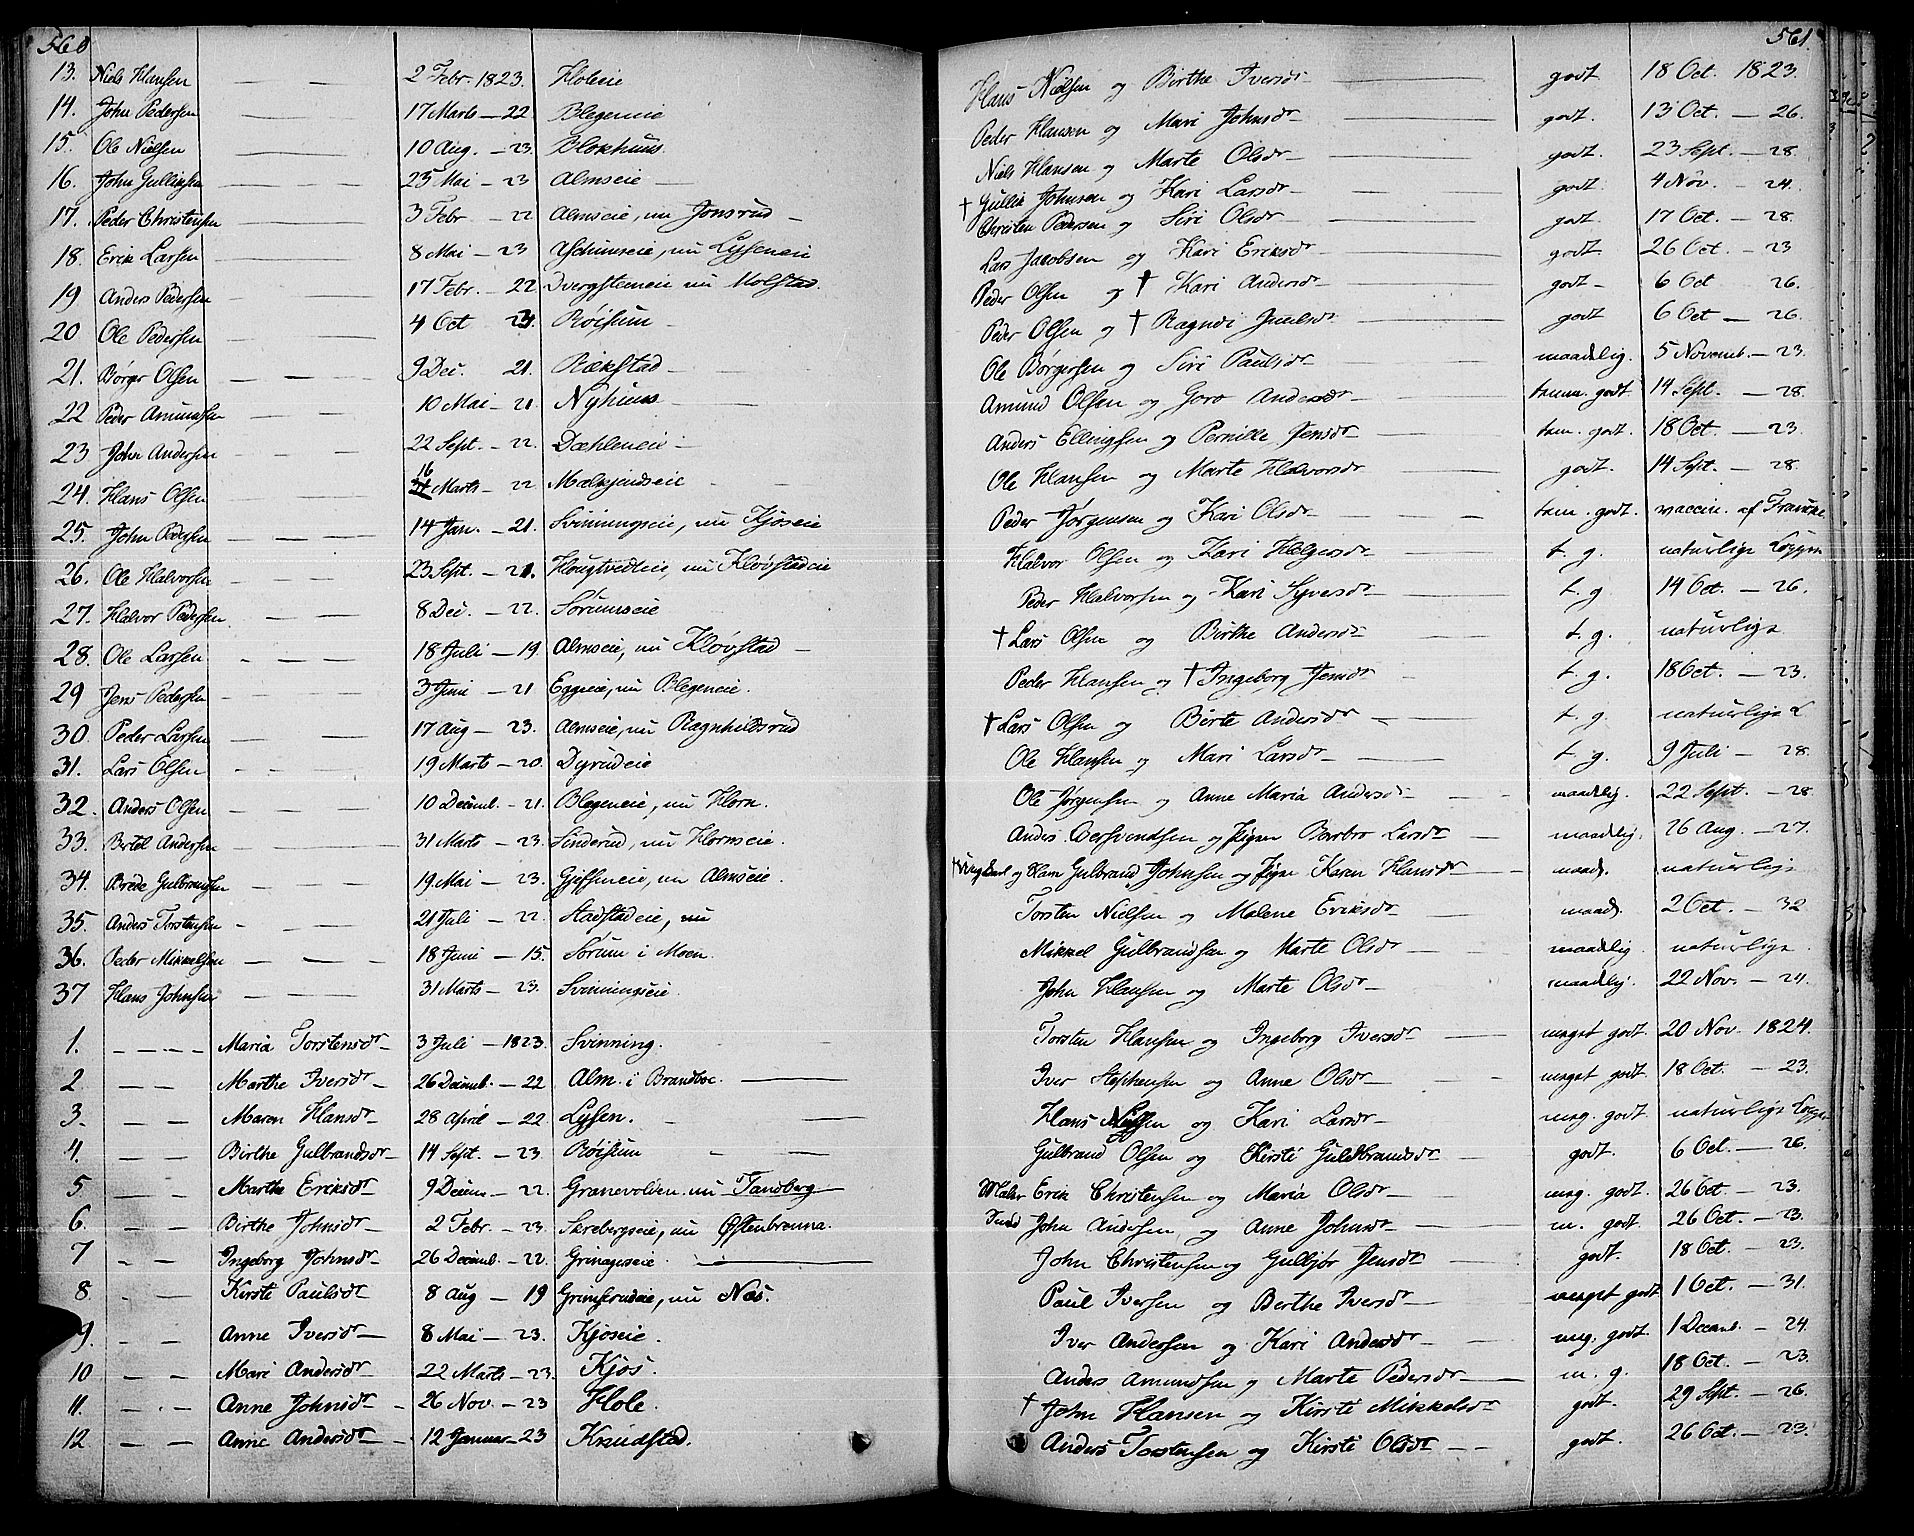 560
13. Niels Hansen — — 2 Febr. 1823. Holeeie
14. John Pedersen — — 17 Marts — 22 Blegeneie
15. Ole Nielsen — — 10 Aug. — 23. Blokhuus.
16. John Gulliksen — — 25 Mai — 23 Almseie —
17. Peder Christensen — 3 Febr — 22 Almseie, nu Jonsrud —
18. Erik Larsen — — 8 Mai — 23 nu Lysseneie
19 Anders Pedersen — — 17 Febr. — 22 Dvergsteneie nu Molstad.
20 Ole Pedersen — — 4 Oct Røisum —
21. Børger Olsen — — — 9 Dec. 21. Rækstad —
22 Peder Amundsen — — — 10 Mai — 21 Nyhuus —
23 John Andersen — — 22 Sept. — 22. Dæhleneie —
24. Hans Olsen — — 16 Marts — 22 —
25. John Pedersen — — — 14 Jan. — 21. Svinningseie, nu Kjoseie
26. Ole Halvorsen — — — 23 Sept. — 21. Hougtvedteie, nu Kløvstadeie
27. Halvor Pedersen — — 8 Dec. — 22. Sørumseie
28. Ole Larsen - — — 18 Juli — 19. Almseie, nu Kløvstad —
29 Jens Pedersen - — — 3 Juni — 21 Eggeeie, nu Blegeneie.
30 Peder Larsen — — 17 Aug — 23. Almseie, nu Ragnhildsrud
31. Lars Olsen - — — 19 Marts — 20. Dyrudeie
32. Anders Olsen — — — 10 Decemb. — 21. Blegeneie, nu Horn.
33. Bertel Andersen — — 31 Marts — 23. Sinderud, nu Hornseie.
34. Brede Gulbrandsen — — 19. Mai — 23. nu Almseie.
35. Anders Torstensen - — — 21 Juli — 22. Stadstadeie, nu
36. Peder Mikkelsen — — — 18 Juni — 15. Sørum i Moen.
37 Hans Johnsen — — — 31 Marts — 23. Svinningseie.
1. — — — Maria Torstensdr — 3 Juli — 1823. Svinning.
2 — — Marthe Iversdr — 26 Decemb. — 22 Alm. i Brandboe. —
3. — — Maren Hansdr 28 April — 22. Lyssen. —
4. — — Birthe Gulbrandsdr — 14 Sept. — 23. Røisum — —
5 — — Marthe Eriksdr 9 Decem — 22. Granevolden nu Tandberg
6. — — Birthe Johnsdr — 2 Febr. — 23. Skrebergseie, nu Østenbrenna.
7 — — Ingeborg Johnsdr — 26 Decemb. — 22. —
8. — — Kirsti Paulsdr 8 Aug — 19 Grimsrudeie, nu Næs.
9. — — Anne Iversdr — 8 Mai — 23. Kjoseie.
10 — — Mari Andersdr — 22 Marts — 23 Kjos.
11. — — Anne Johnsdr — 26 Nov. — 23 Hole.
12. — — Anne Andersdr — 12 Januar — 23 Knudstad.
561.
Hans Nielsen og Birthe Iversdr — godt 18 Oct. 1823.
Peder Hansen og Mari Johnsdr — godt. 13 Oct. — 26.
Niels Hansen og Marte Olsdr — godt. 23 Sept. — 28.
† Gullik Johnsen og Kari Larsdr — godt. 4 Nov. — 24.
Christen Pedersen og Siri Olsdr — godt 17 Oct. — 28.
Lars Jacobsen og Kari Eriksdr — godt. 26 Oct. — 23
Peder Olsen og † Kari Andersdr — godt — 6 Oct 26.
Peder Olsen og † Ragndi — godt 6 Oct — 26.
Ole Børgersen og Siri Paulsdr — maadelig. 5 Novemb. — 23.
Amund Olsen og Goro Andersdr — temm. godt 14 Sept. — 28.
Anders Ellingsen og Pernille Jensdr — tem. godt. 18 Oct. — 23.
Ole Hansen og Marte Halvorsdr — godt. 14 Sept. — 28.
Peder Jørgensen og Kari Olsdr — tem. godt. vaccin. af
Halvor Olsen og Kari Helgersdr — t. g. naturlige Kopper
Peder Halvorsen og Kari Syversdr — t. g 14 Oct. — 26.
† Lars Olsen og Birthe Andersdr — t. g. naturlige
Peder Hansen og † Ingeborg Jensdr — t. g. 18 Oct. — 23.
† Lars Olsen og Birte Andersdr — t. g. naturlige
Ole Hansen og Mari Larsdr — t. g. 9 Juli — 28.
Ole Jørgensen og Anne Maria Andersdr — maadelig. 22 Sept. — 28
Anders og Pigen Barbro Larsdr — maadelig. 26 Aug. — 27.
Gulbrand Johnsen og Pige Karen Hansdr — maad. naturlige
Torsten Nielsen og Malene Eriksdr — maad. 2 Oct. — 32
Mikkel Gulbrandsen og Marte Olsdr — maadelig naturlige.
John Hansen og Marte Olsdr — maadelig. 22 Nov. — 24.
Torsten Hansen og Ingeborg Iversdr — meget godt. 20 Nov. 1824.
Iver Stephensen og Anne Olsdr — meget godt. 18 Oct. — 23.
Hans og Kari Larsdr — meg. godt naturlige Kopper
Gulbrand Olsen og Kirsti Guldbrandsdr — godt. 6 Oct. — 26.
Maler Erik Christensen og Maria Olsdr — meg. godt. 26 Oct. — 23.
John Andersen og Anne Johnsdr — m. godt. 26 Oct. — 23.
John Christensen og Gulbjør Jensdr — godt. 18 Oct. — 23.
Paul Iversen og Berthe Iversdr — meget godt 1 Oct. — 31.
Iver Andersen og Kari Andersdr — meg. godt. 1 Decemb. — 24.
Anders Amundsen og Marte Pedersdr — m. g. 18 Oct. — 23.
† John Hansen og Kirsti Mikkelsdr — godt. 29 Sept. — 26.
Anders Torstensen og Kirsti Olsdr — — godt. 26 Oct. — 23.